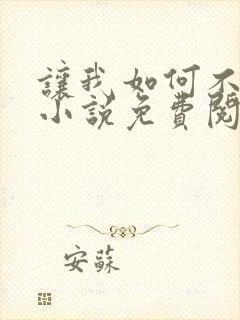 讓我如何不
小說免費閱
安蘇